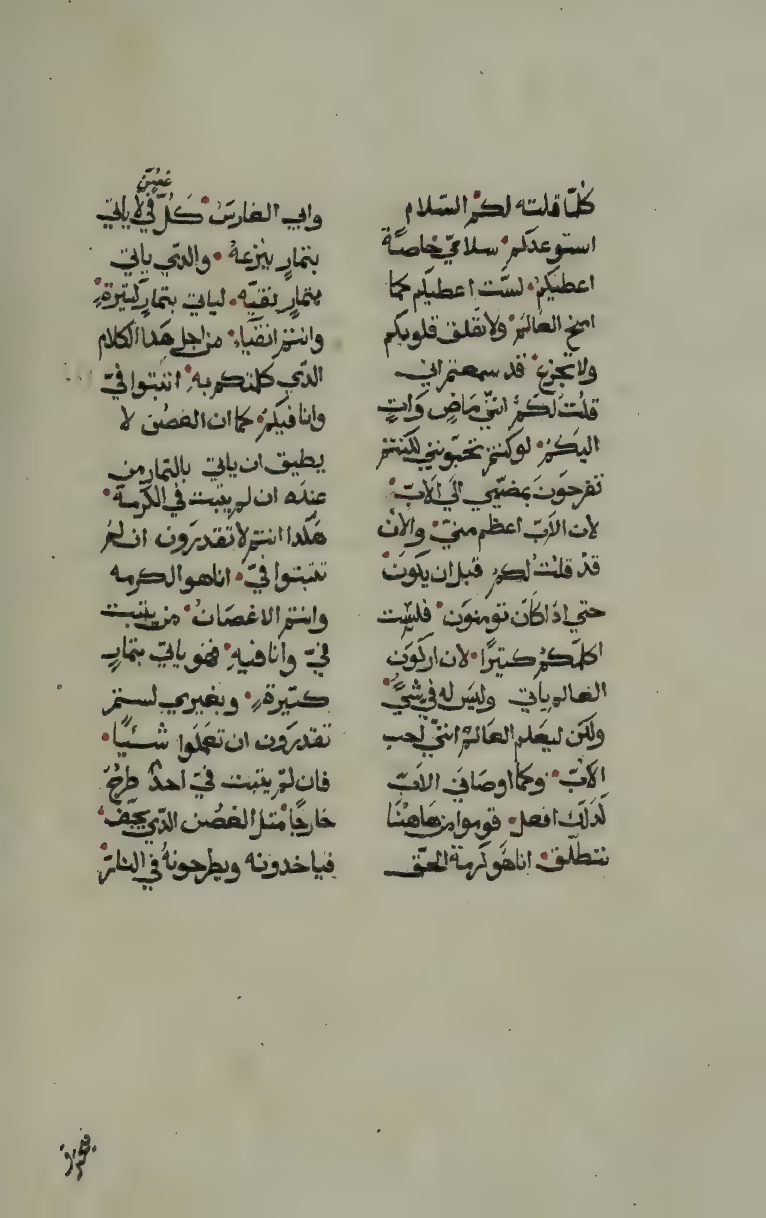 كلمّا قلته لكم السّلام
استوعدكم سلامي خاصةً
اعطيكم لسّت اعطيكم كما
العالم ولا تقلق قلوبكم
ولا تجزع قد سمعتم اني
قلت لكم انني ماضٍ واتٍ
اليكم لو كنتم تحبّونني لكنتم
تفرحون بمضيّي الي الاب
لان الابّ اعظم منيّ والان
قد قلت لكم قبل ان يكون
حتي اذا كان تومنون فلست
اكلمّكم كتيرًا لان اركون
العالم ياتي وليس له فيّ شيً
ولكن ليعلم العالم انني احب
الابّ وكما اوصاني الابّ
كدلك افعل قوموا من هاهنا
ننطلق انا هو كرمة الحق
غصن
وابي الفارس كلّ فيّ لا ياتي
بتمارٍ ينزعه والدّي ياتي
بتمارٍ ينقيّه لياتي بتمارٍ كتيرةٍ
وانتم انقياء من اجل هدا الكلام
الدّي كلمتكم به اتبتوا فيّ
وانا فيكم كما ان الغصن لا
يطيق ان ياتي بالتمار من
عنده ان لم يتبت في الكرمة
هكدا انتم لا تقدرون ان لم
تتبتوا فيّ انا هو الكرمه
وانتم الاغصان من يتبت
فيّ وانا فيه فهو ياتي بتمارٍ
كتيرةٍ وبغيري لستم
تقدرون ان تعملوا شئيًا
فان لم يتبت فيّ احدٌ طرح
خارجًا متل الغصن الدّي يجّف
فياخدونه ويطرحونه في النار